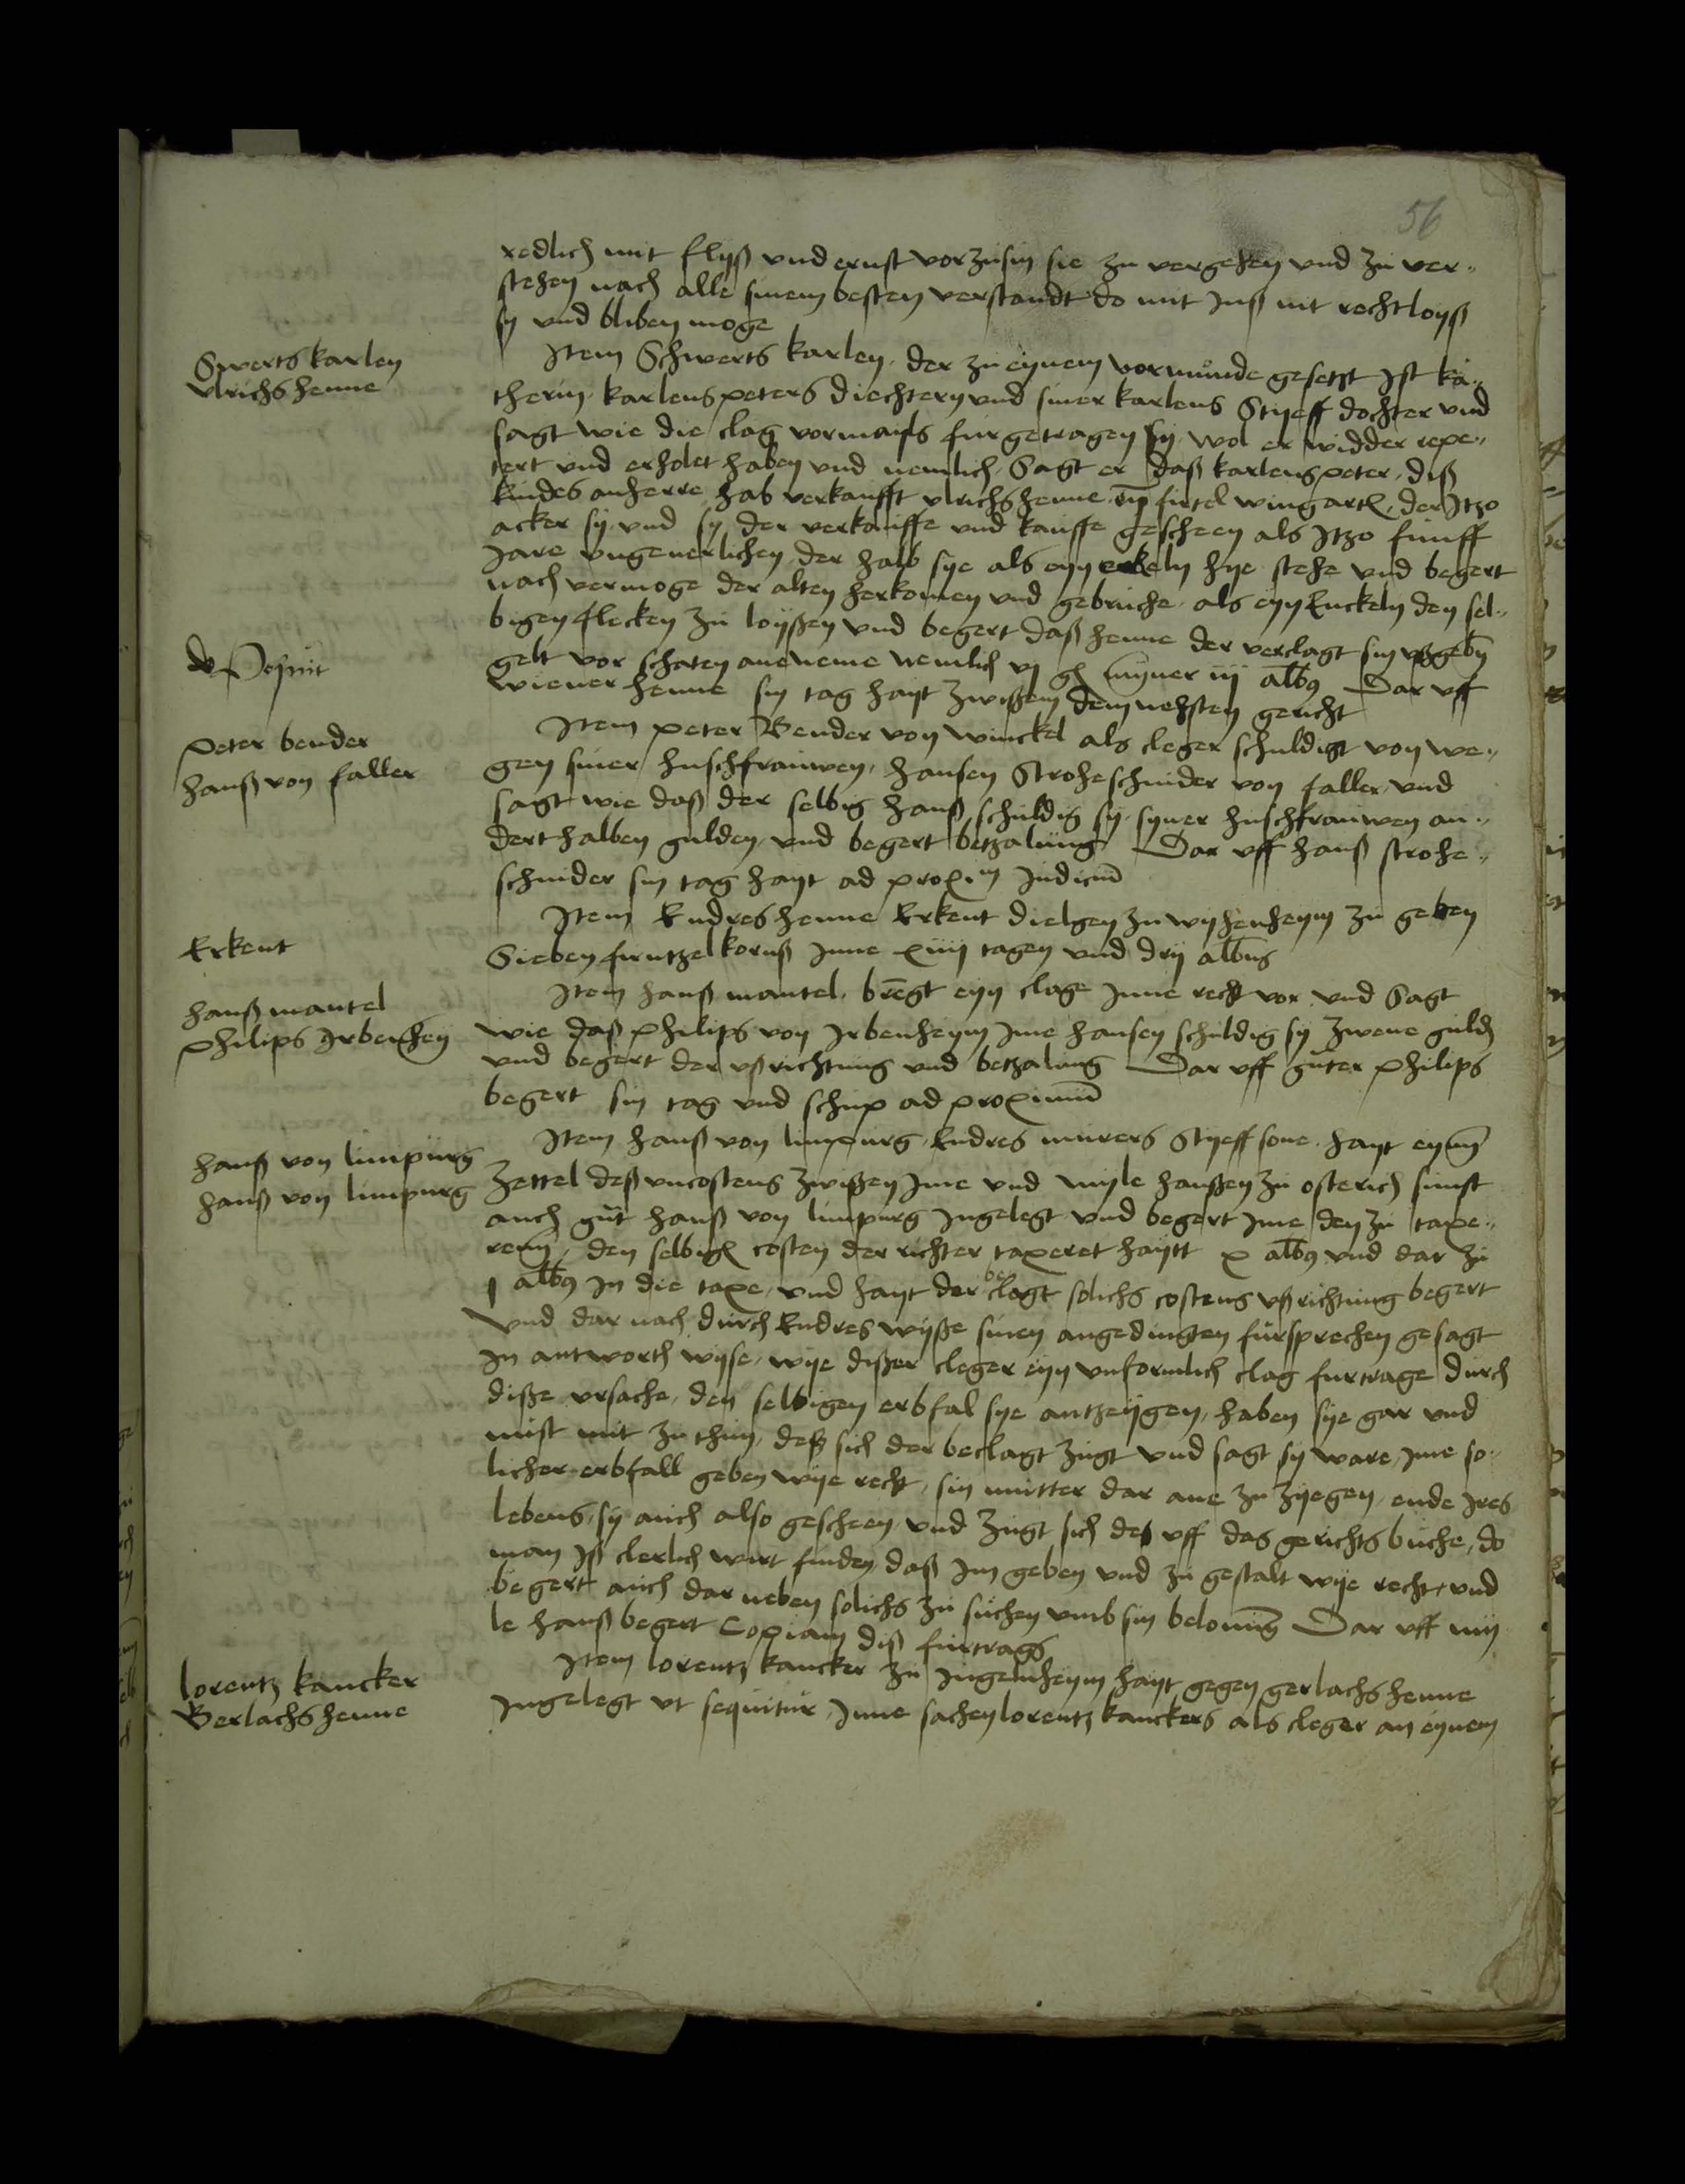 56
redlich mit flyß vnd ernst vorzusin sie zu vergehen vnd zu ver„
stehen nach alle sinem besten verstandt do mit Inß nit rechtloyß
sy vnd bliben moge
Swerts karlen
Vlrichs henne
Item Schwerts karlen, der zu eynem vormunde gesetzt Ist ka„
therin, karlens peters diechtern vnd siner karlens Styeff dochter vnd
sagt wie die clag vormails fur getragen sy, wol er widder repe„
tert vnd erholet haben vnd nemlich, Sagt er daß karlens peter, diß
kindes anherre hab verkaufft vlrichs henne firtel wingart, der Itzo
acker sy vnd sy der verkauffe vnd kauffe gescheen als Itzo funff
Jare vngeuerlichen der halb sye als eyn enkeln hye stehe vnd begert
nach vermoge der alten herkomen vnd gebruche, als eyn Enckeln den sel„
bigen flecken zu loyßen vnd begert daß henne der verclagt sin vßgebn
gelt vor schaten aneneme nemlich vj gl myner iij albus Dar vff
de Posuit
wiener henne sin tag hayt zwißem dem nehsten gericht
peter bender
hanß von faller
Item peter Bender von winckel als cleger schuldigt von we„
gen siner huschfrauwen, hansen Stroheschnider von faller vnd
sagt wie daß der selbig hanß schuldig sy, syner huschfrauwen an„
derthalben gulden, vnd begert betzalung Dar vff hanß strohe„
schnider sin tag hayt ad proxim Judiciu
Erkent
Item Endres henne Erkent dielgen zu wyhenheym zu geben
Sieben firntzel kornß Jnne xiiij tagen vnd dry albus
hanß mantel
philips Irbenhen
Item hanß mantel, brengt eyn clage Jnne recht vor vnd Sagt
wie daß philips von Irbenheym Ime hansen schuldig sy zwene guld
vnd begert der vßrichtung vnd betzalung Dar vff guter philips
begert sin tag vnd schup ad proximu
hanß von limpurg
hanß von limpurg
Item hanß von limpurg, Endres murers Styeff sone, hayt eynn
zettel deß vncostens zwißen Ime vnd myle hanßen zu osterich sunst
auch gut hanß von limpurg Ingelegt vnd begert Ime den zu taxe„
renn, den selbigen costen der richter taxeret haytt x albus vnd dar zu
j albus In die taxe, vnd hayt der beclagt solichs costens vßrichtung begert
Vnd dar nach durch Endres wyße sinen angedingten fursprechen gesagt
In antworth wyse, wye dißer cleger eyn vnformlich clag furtrage durch
diße vrsache, den selbigen erbfal sye antzeygen, haben sye gar vnd
nust mit zu thun, deß sich der beclagt zugt vnd sagt sy ware Ime so„
licher erbfall geben wye recht, sin mutter dar ane zu zyegen, ende Ires
lebens, sy auch also gescheen vnd zugt sich des vff das gerichts buche, do
man Iß clerlich wirt finden, daß Im geben vnd zu gestalt wye recht, vnd
begert auch dar neben solichs zu suchen vmb sin belonung Dar vff my
le hanß begert Copiam diß furtrags
lorentz kancker
Gerlachs henne
Item lorentz kancker zu Ingelnheym hayt gegen gerlachs henne
Ingelegt vt sequitur, Inne sachen lorentz kanckers als cleger an eynem